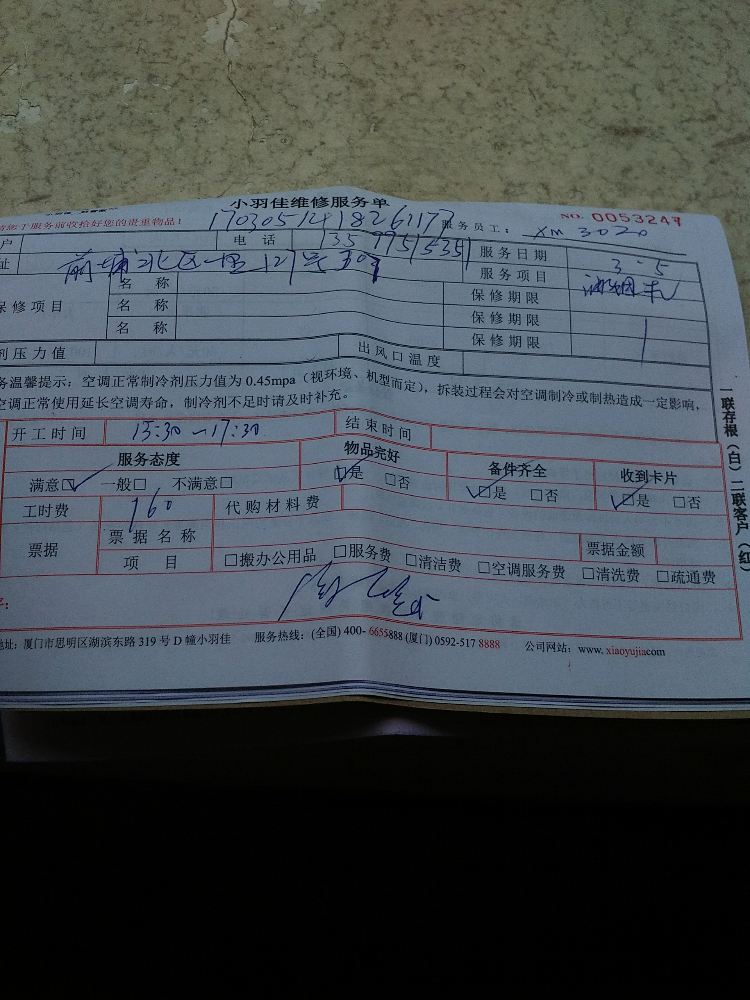 小羽佳维修服务单
请您于服务前收拾好您的贵重物品! 服务员工: XM 3020 NO. 0053247
户 电 话 服务日期 3-5
址 服务项目
保修项目 名 称 保修期限
名 称 保修期限
名 称 保修期限
剂压力值 出风口温度
务温馨提示: 空调正常制冷剂压力值为 0.45mpa (视环境、机型而定), 拆装过程会对空调制冷或制热造成一定影响,
空调正常使用延长空调寿命, 制冷剂不足时请及时补充。
开工时间 15:30~17:30 结束时间
服务态度 物品完好 备件齐全 收到卡片
满意□✓ 一般□ 不满意□ ☑是 □否 ☑是 □否 ☑是 □否
工时费 160 代购材料费
票据 票 据 名 称 票据金额
项 目 □搬办公用品 □服务费 □清洁费 □空调服务费 □清洗费 □疏通费
地址: 厦门市思明区湖滨东路 319 号 D 幢小羽佳 服务热线: (全国) 400- 6655888 (厦门) 0592-517 8888 公司网站: www. xiaoyujiacom
一联存根(白)二联客户(红)